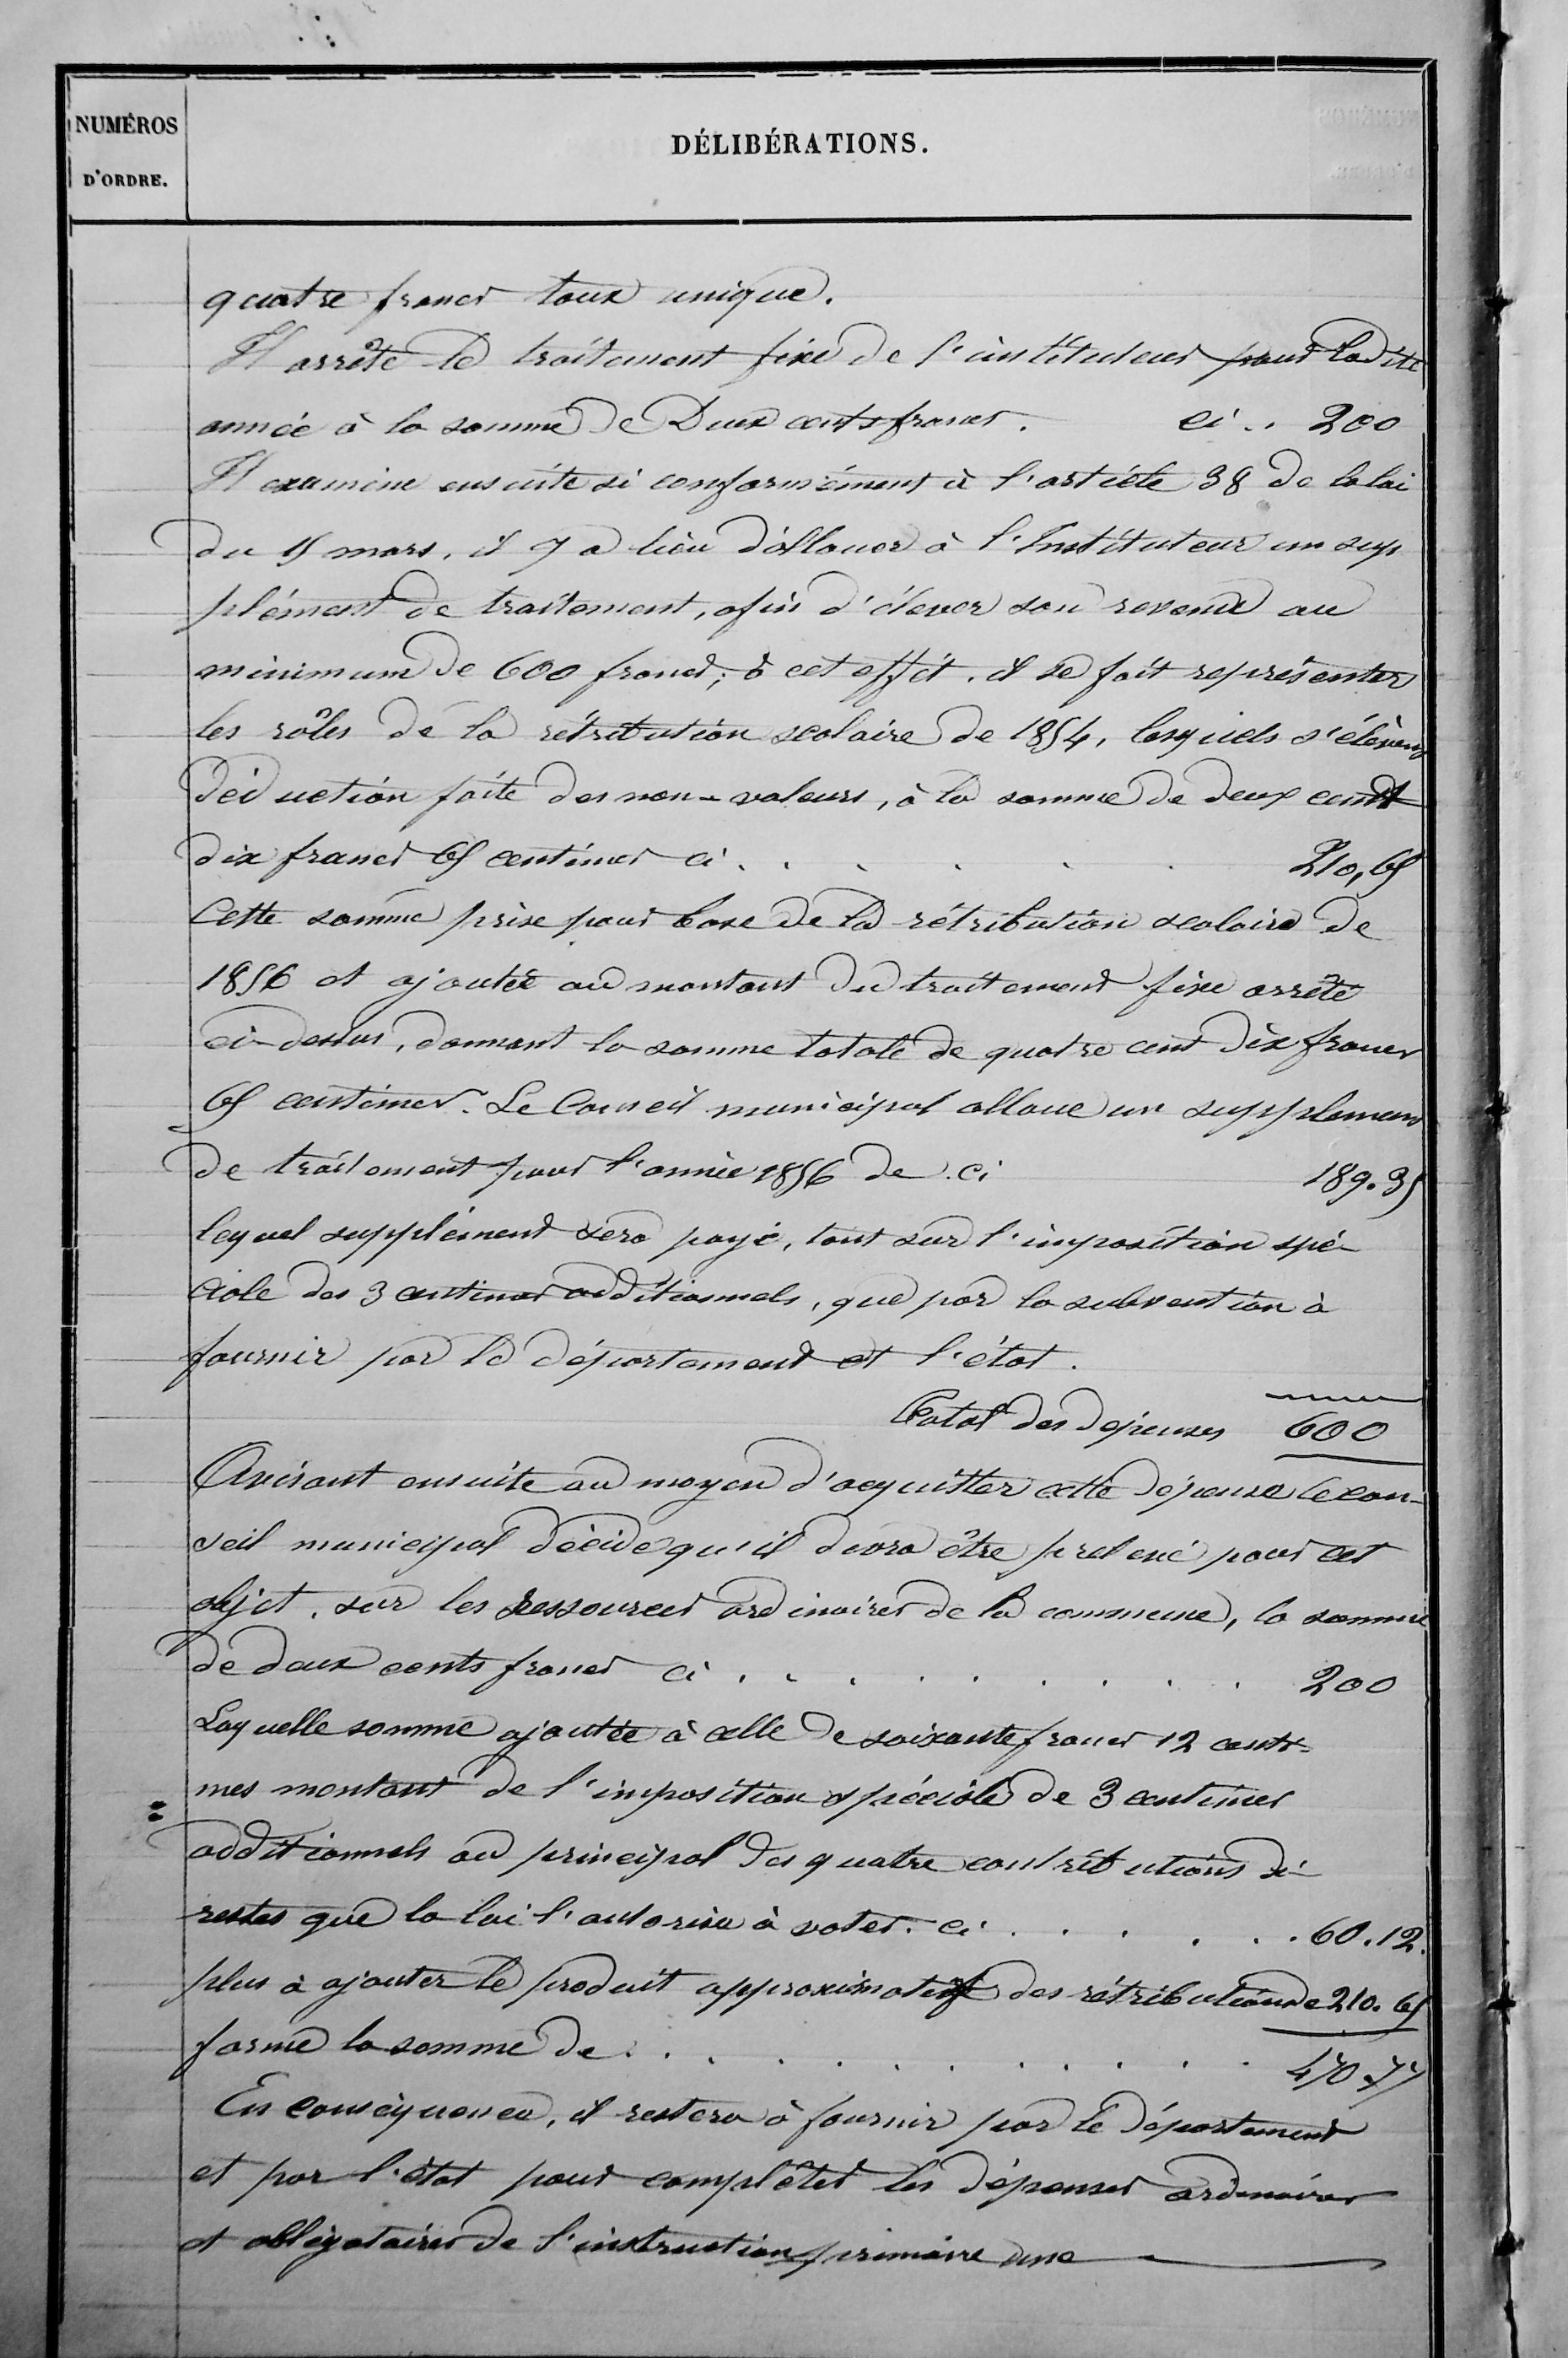 NUMÉROS
D'ORDRE.
DÉLIBÉRATIONS.
quatre francs taux unique.
Il arrête le traitement fixe de l'instituteur pour ladite
année à la somme de Deux cents francs. ci .. 200
Il examine ensuite si conformément à l'article 38 de la loi
du 15 mars, il y a lieu d'allouer à l'Instituteur un sup
plément de traitement, afin d'élever son revenu au
minimum de 600 francs; à cet effet, il se fait représenter
les rôles de la rétribution scolaire de 1854, lesquels s'élèvent
déduction faite des non-valeurs, à la somme de deux cent
dix francs 65 centimes ci . . . . . . 210,65
Cette somme prise pour base de la rétribution scolaire de
1856 et ajoutée au montant du traitement fixe arrêté
ci-dessus, donnant la somme totale de quatre cent dix francs
65 centimes. Le Conseil municipal alloue un supplément
de traitement pour l'année 1856 de . ci 189.35
lequel supplément sera payé, tant sur l'imposition spé-
ciale des 3 centimes additionnels, que par la subvention à
fournir par le département et l'état.
Total des dépenses 600
Avisant ensuite au moyen d'acquitter cette dépense le con-
seil municipal décide qu'il devra être prélevé pour cet
objet, sur les ressources ordinaires de la commune, la somme
de deux cents francs ci . . . . . . . . . 200
Laquelle somme ajoutée à celle de soixante francs 12 centi-
mes montant de l'imposition spéciale de 3 centimes
additionnels au principal des quatre contributions di-
rectes que la loi l'autorise à voter. ci . . . . . . 60.12.
plus à ajouter le produit approximatif des rétributions de 210.65
forme la somme de . . . . . . . . . . . 470.77
En conséquence, il restera à fournir par le département
et par l'état pour compléter les dépenses ordinaires
et obligatoires de l'instruction primaire une